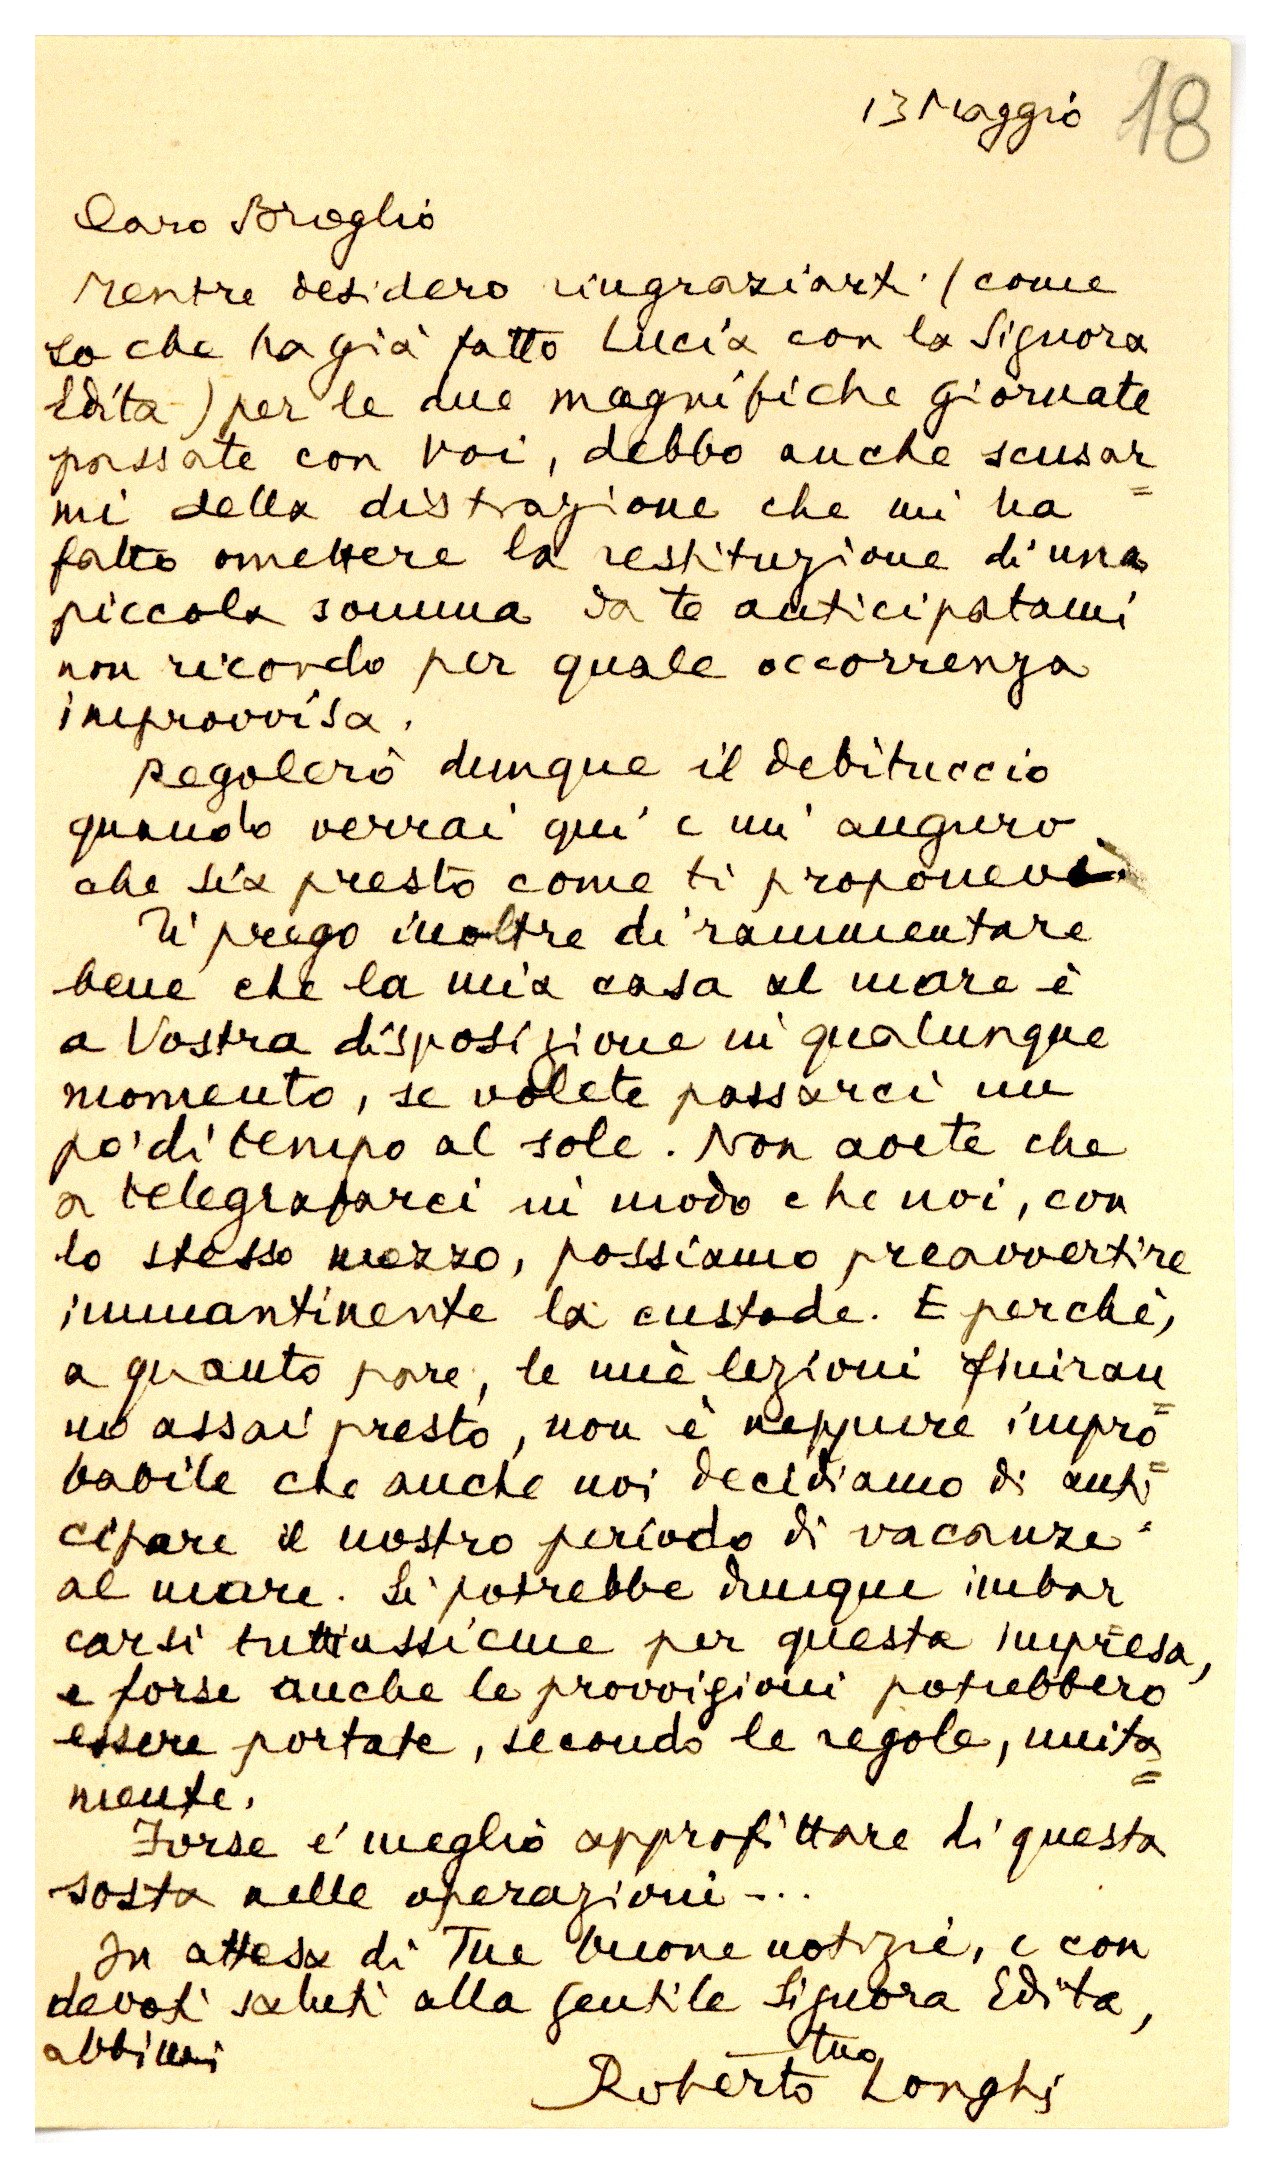 13 Maggio 18
Caro Broglio
Mentre desidero ringraziarti (come
so che ha già fatto Lucia con la Signora
Edita) per le due magnifiche giornate
passate con Voi, debbo anche scusar=
mi della distrazione che mi ha
fatto omettere la restituzione di una
piccola somma da te anticipatami
non ricordo per quale occorrenza
improvvisa.
Regolerò dunque il debituccio
quando verrai qui e mi auguro
che sia presto come ti proponevi.
Ti prego inoltre di rammentare
bene che la mia casa al mare è
a Vostra disposizione in qualunque
momento, se volete passarci un
po' di tempo al sole. Non avete che
a telegrafarci in modo che noi, con
lo stesso mezzo, possiamo preavvertire
immantinente la custode. E perchè,
a quanto pare, le mie lezioni finiran=
no assai presto, non è neppure impro=
babile che anche noi decidiamo di anti=
cipare il nostro periodo di vacanze
al mare. Si potrebbe dunque imbar
carsi tutti assieme per questa impresa,
e forse anche le provvigioni potrebbero
essere portate, secondo le regole, unita=
mente.
Forse è meglio approfittare di questa
sosta nelle operazioni...
In attesa di Tue buone notizie, e con
devoti saluti alla gentile Signora Edita,
abbimi
tuo
Roberto Longhi